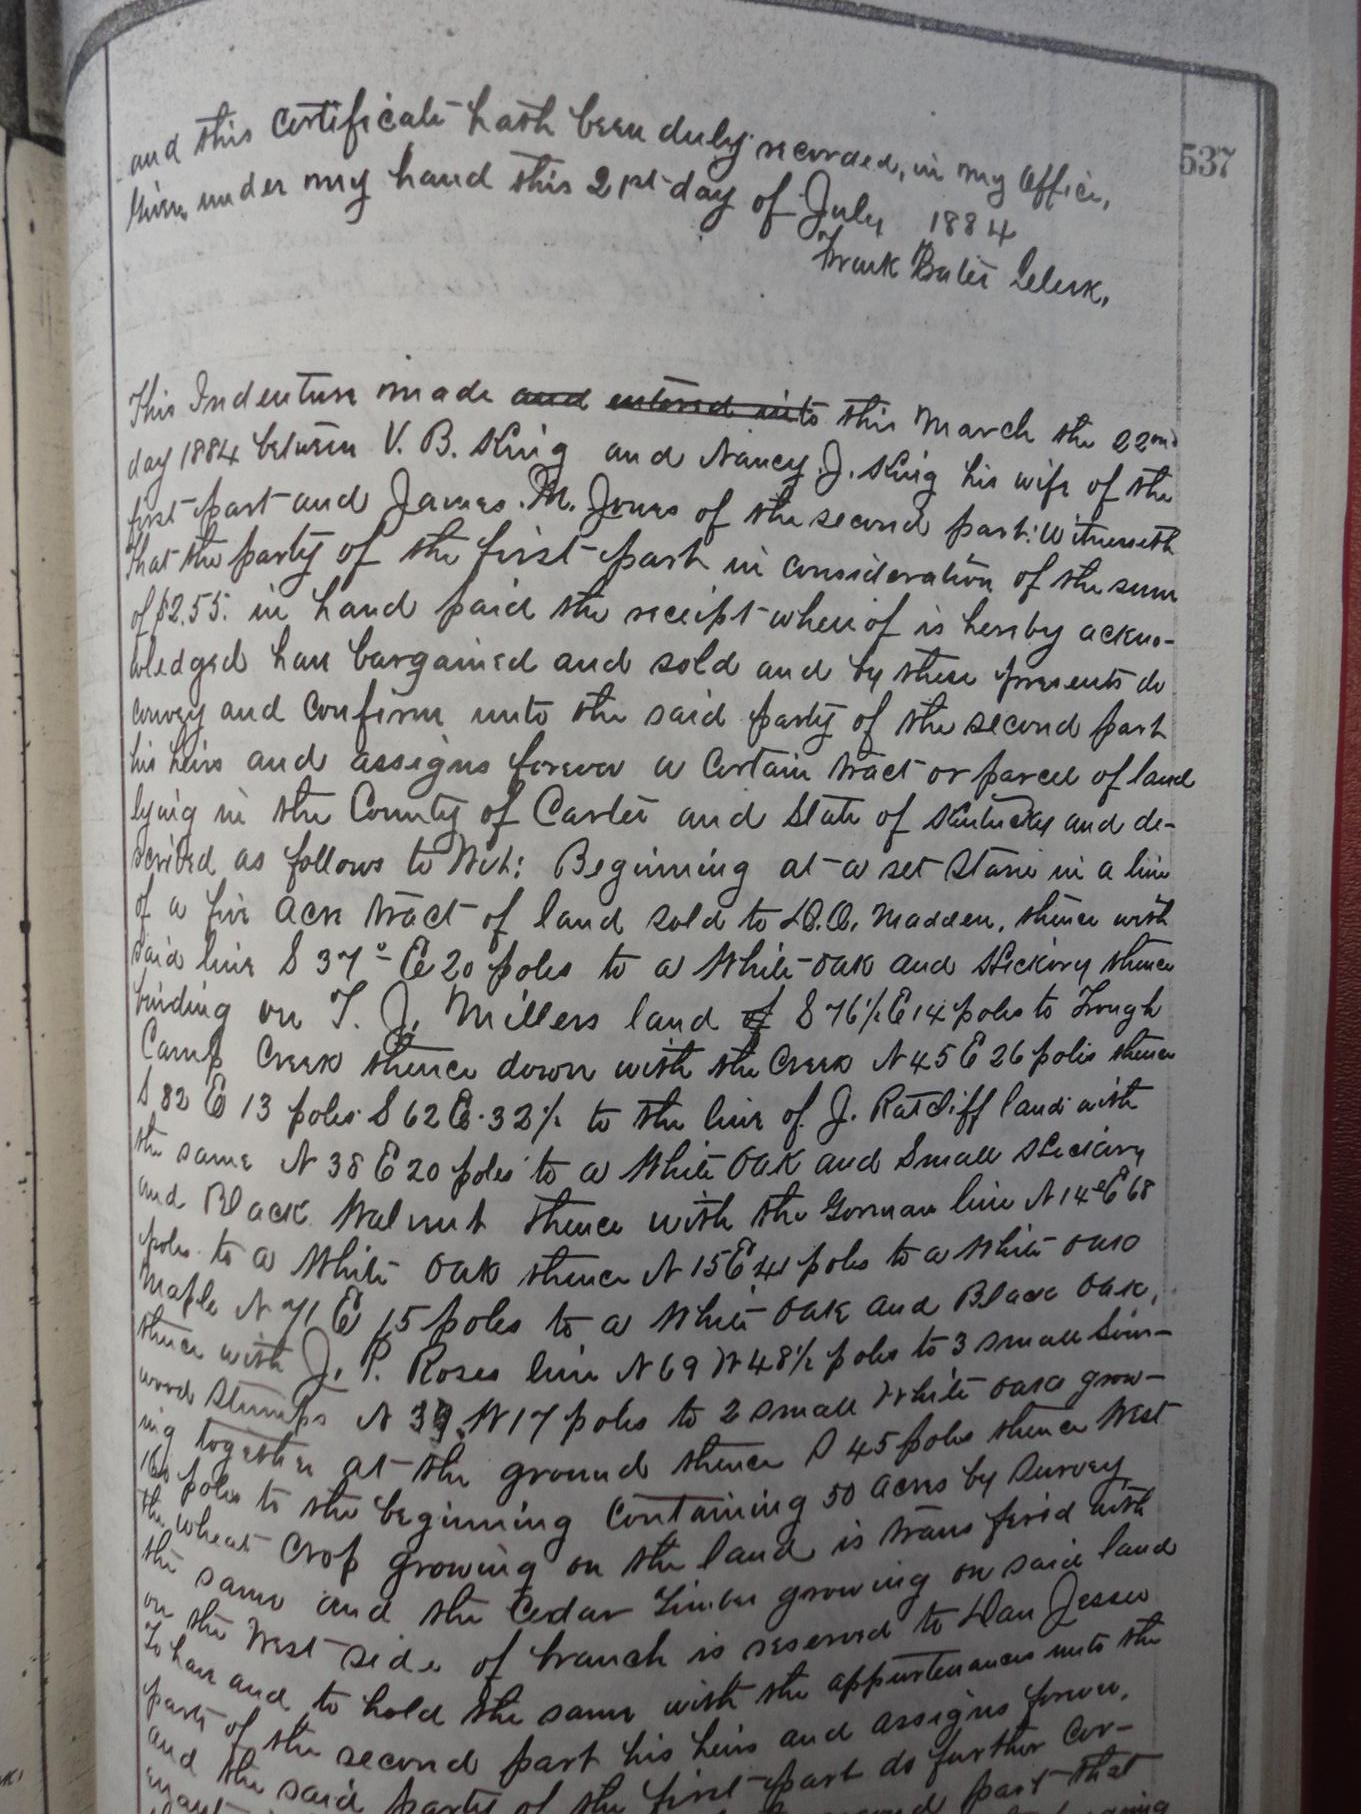 537
and this Certificate hath been duly recorded, in my office,
Given under my hand this 21st day of July 1884
Frank Bates Clerk,
This Indenture made and entered into this March the 22nd
day 1884 between V. B. King and Nancy J. King his wife of the
first part and James. M. Jones of the second part: Witnesseth
That the party of the first part in consideration of the sum
of $2.55. in hand paid the receipt whereof is hereby ackno-
wledged have bargained and sold and by these presents do
convey and confirm unto the said party of the second part
his heirs and assigns forever a certain tract or parcel of land
lying in the County of Carter and State of Kentucky and de-
scribed as follows to Wit: Beginning at a set Stone in a line
of a five acre tract of land sold to Madden, thence with
said line S 37° E 20 poles to a White oak and Hickory thence
binding on T. J. Millers land S 76½ E 14 poles to Trough
Camp Creek thence down with the Creek N 45 E 26 poles thence
S 82 E 13 poles S 62 E. 32½ to the line of J. Ratcliff land with
the same N 38 E 20 poles to a White Oak and Small Hickory
and Black Walnut thence with the Gorman line N 14° E 68
poles to a White Oak thence N 15 E 41 poles to a White oak
Maple N 71 E 15 poles to a White Oak and Black Oak,
thence with J. P. Roses line N 69 W 48½ poles to 3 small Sour-
wood Stumps N 39. W 17 poles to 2 small White oaks grow-
ing together at the ground thence S 45 poles thence West
poles to the beginning Containing 50 acres by Survey
the wheat Crop growing on the land is transferid with
the same and the Cedar Timber growing on said land
on the West side of branch is reserved to Dan Jesse
To have and to hold the same with the appurtenances unto the
party of the second part his heirs and assigns forever,
and the said party of the first part do further Cov-
enant part that